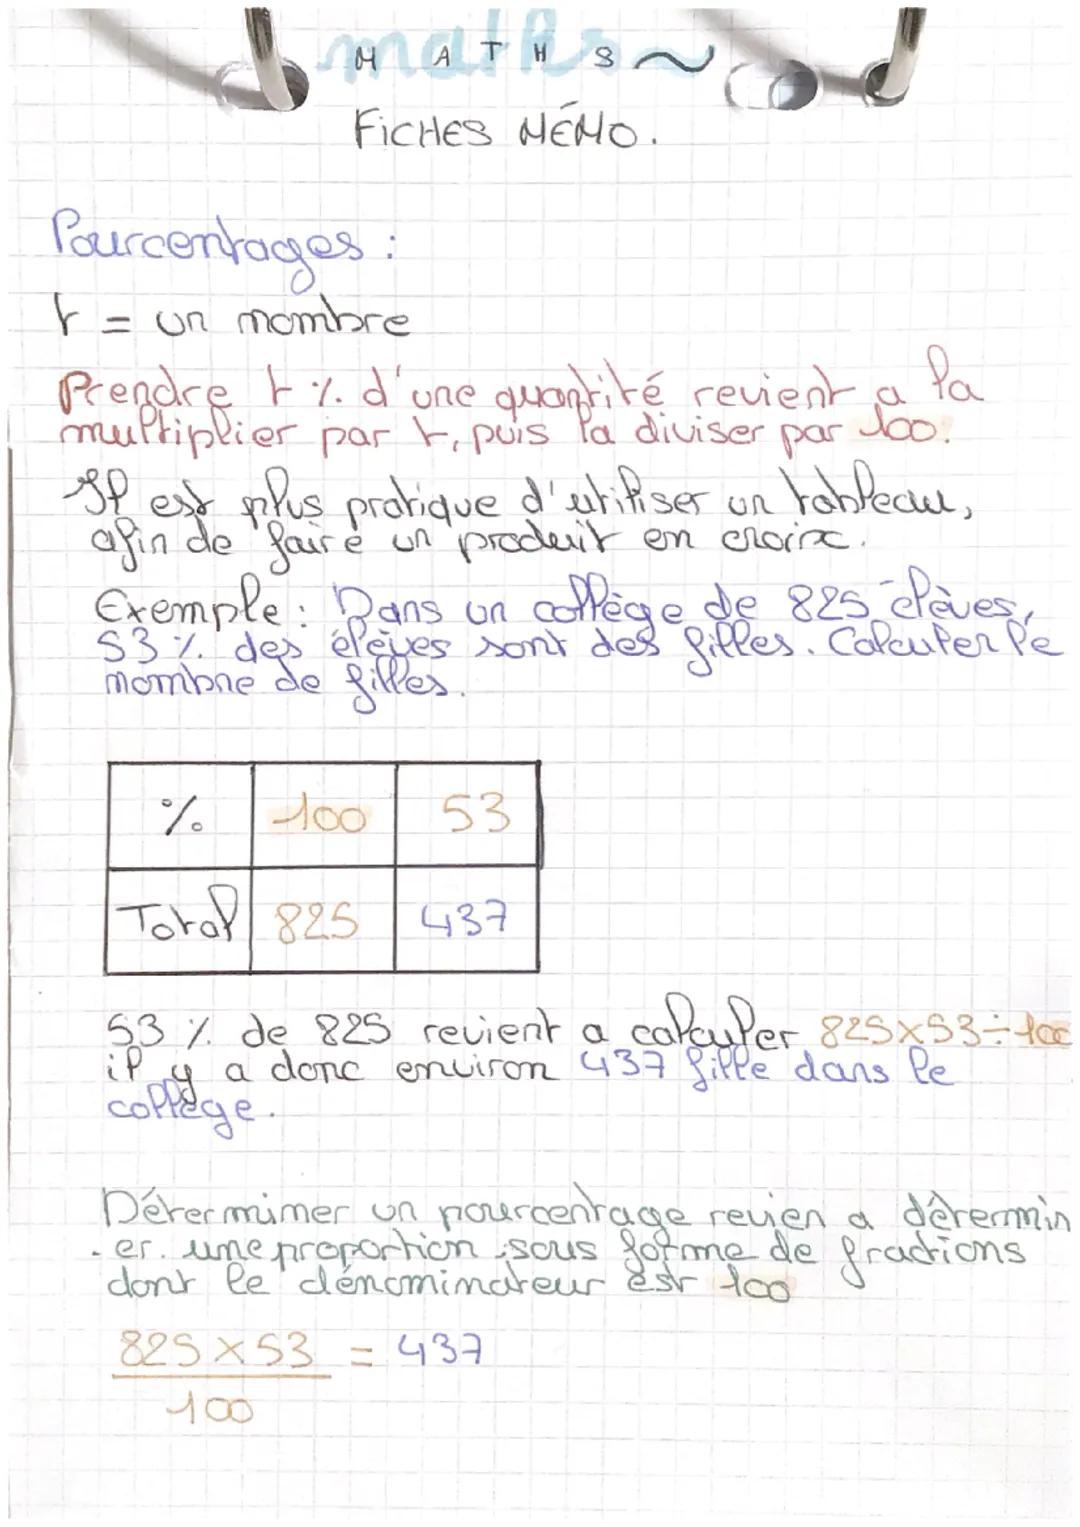 maths
MATHS~
FICHES MÉMO.
Pourcentages :
t = un nombre
Prendre t % d'une quantité revient a la
multiplier par t, puis la diviser par 100.
Il est plus pratique d'utiliser un tableau,
afin de faire un produit en croix.
Exemple : Dans un collège de 825 élèves,
53 % des élèves sont des filles. Calculer le
nombre de filles.
% 100 53
Total 825 437
53 % de 825 revient a calculer 825x53÷100
il y a donc environ 437 fille dans le
collège.
Déterminer un pourcentage revien a détermin
-er une proportion sous forme de fractions
dont le dénominateur est 100
825 x 53 = 437
100